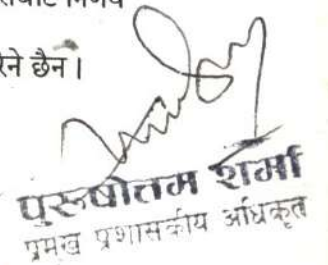 निर्णय
छैन ।
पुरूषोत्तम शर्मा
प्रमुख प्रशासकीय अधिकृत